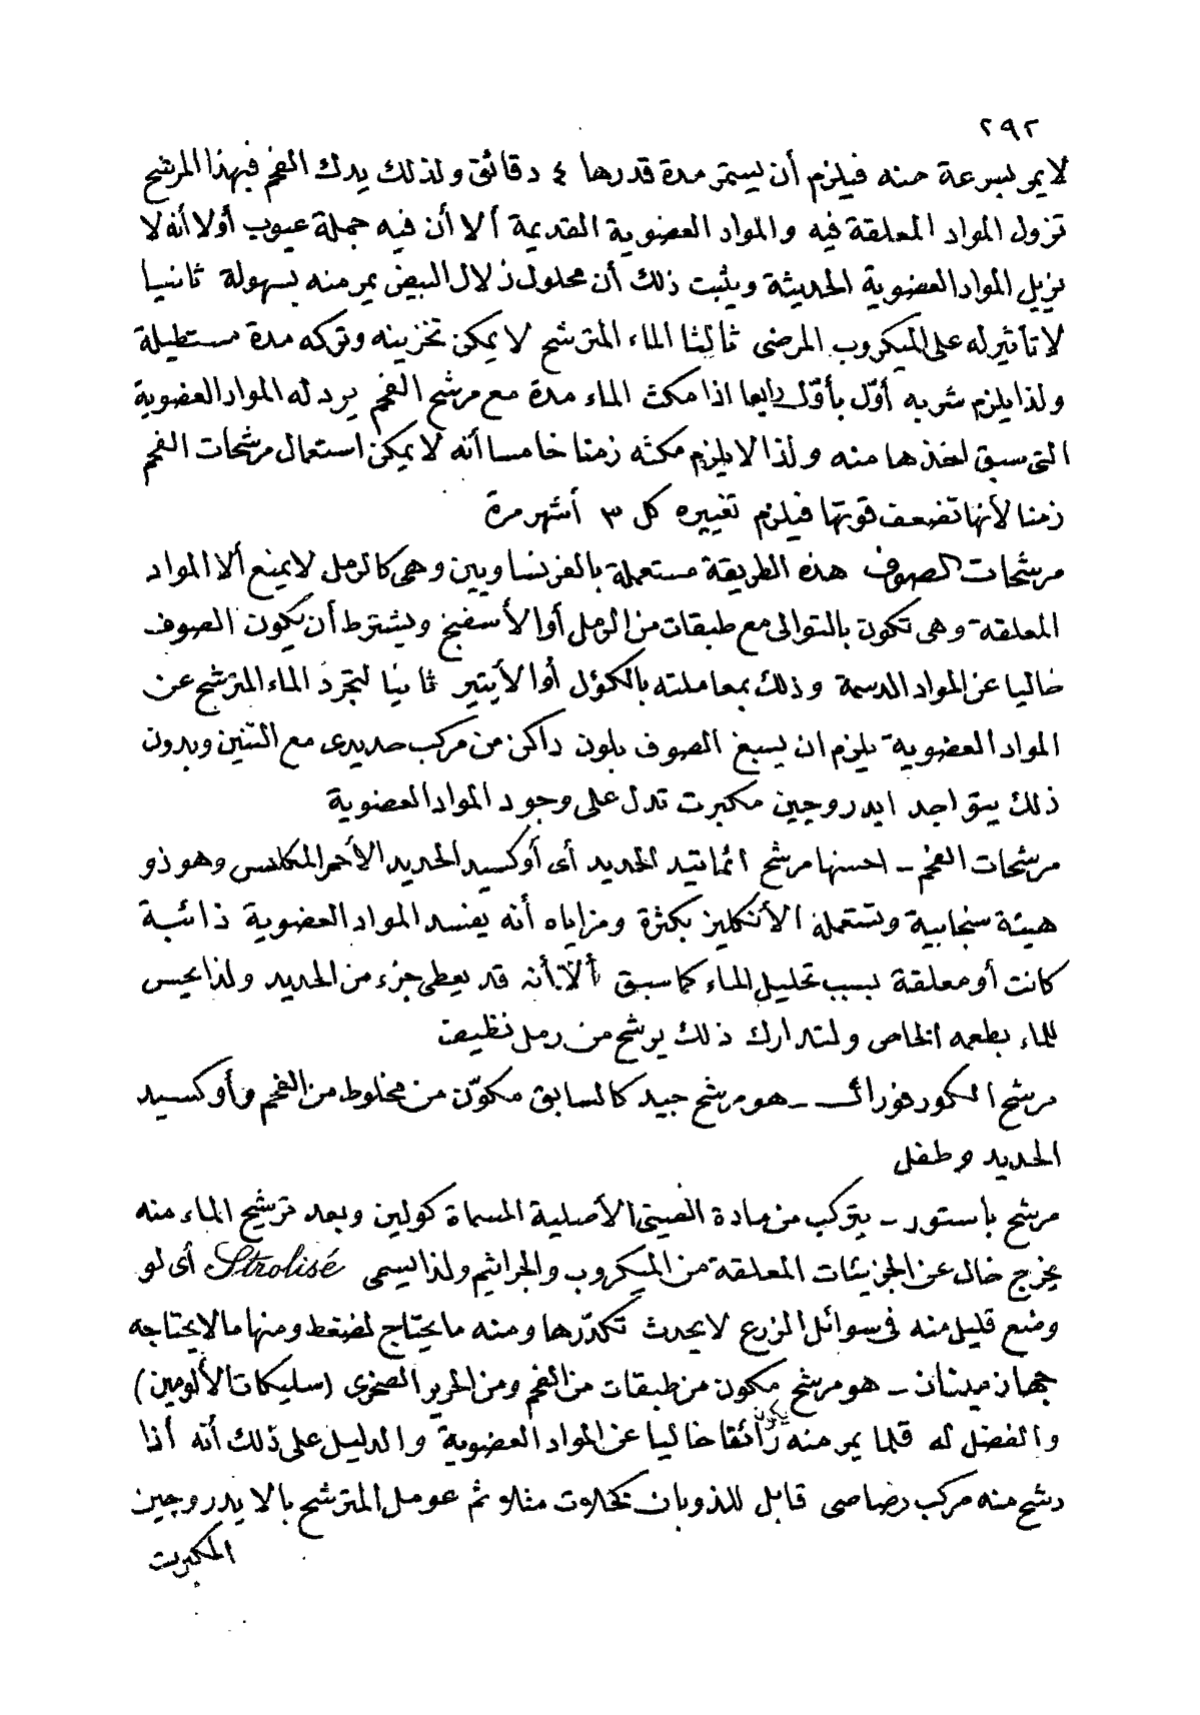 ٢٩٢
لا يمر بسرعة منه فيلزم أن يستمر مدة قدرها ٤ دقائق ولذلك يدك الفحم فبهذا المرشح
تزول المواد المعلقة فيه والمواد العضوية القديمة ألا أن فيه جملة عيوب أولا أنه لا
يزيل المواد العضوية الحديثة ويثبت ذلك أن محلول زلال البيض يمر منه بسهولة ثانيا
لا تأثير له على الميكروب المرضى ثالثا الماء المترشح لا يمكن تخزينه وتركه مدة مستطيلة
ولذا يلزم شربه أوّل بأوّل رابعا اذا مكث الماء مدة مع مرشح الفحم يرد له المواد العضوية
التى سبق اخذها منه ولذا لا يلزم مكثه زمنا خامسا أنه لا يمكن استعمال مرشحات الفحم
زمنا لأنها تضعف قوتها فيلزم تغييره كل ٣ أشهر مرة
مرشحات الصوف هذه الطريقة مستعملة بالفرنساويين وهى كالرمل لا يمنع ألا المواد
المعلقة وهى تكون بالتوالى مع طبقات من الرمل أو الأسفنج ويشترط أن يكون الصوف
خاليا عن المواد الدسمة وذلك بمعاملته بالكؤل أو الأيتير ثانيا لتجرد الماء المترشح عن
المواد العضوية يلزم ان يسبغ الصوف بلون داكن من مركب حديدى مع التنين وبدون
ذلك يتواجد ايدروجين مكبرت تدل على وجود المواد العضوية
مرشحات الفحم - احسنها مرشح ائماتيد الحديد أى أوكسيد الحديد الأحمر المكلس وهو ذو
هيئة سنجابية وتستعمله الأنكليز بكثرة ومزاياه أنه يفسد المواد العضوية ذائبة
كانت أو معلقة بسبب تحليل الماء كما سبق ألا أنه قد يعطى جزء من الحديد ولذا يحس
للماء بطعمه الخاص ولتدارك ذلك يرشح من رمل نظيف
مرشح الكورفورال - هو مرشح جيد كالسابق مكوّن من مخلوط من الفحم وأوكسيد
الحديد وطفل
مرشح باستور - يتركب من مادة الصينى الأصلية المسماة كولين وبعد ترشيح الماء منه
يخرج خال عن الجزيئات المعلقة من الميكروب والجراثيم ولذا يسمى Strolisé أى لو
وضع قليل منه فى سوائل الزرع لا يحدث تكدّرها ومنه ما يحتاج لضغط ومنها ما لا يحتاجه
جهاز مينان - هو مرشح مكون من طبقات من الفحم ومن الحرير الصخرى (سليكات الألومين)
والفضل له قلما يمر منه يكون رائقا خاليا عن المواد العضوية والدليل على ذلك أنه أذا
رشح منه مركب رصاصى قابل للذوبان كخلات مثلا ثم عومل المترشح بالايدروجين
المكبرت